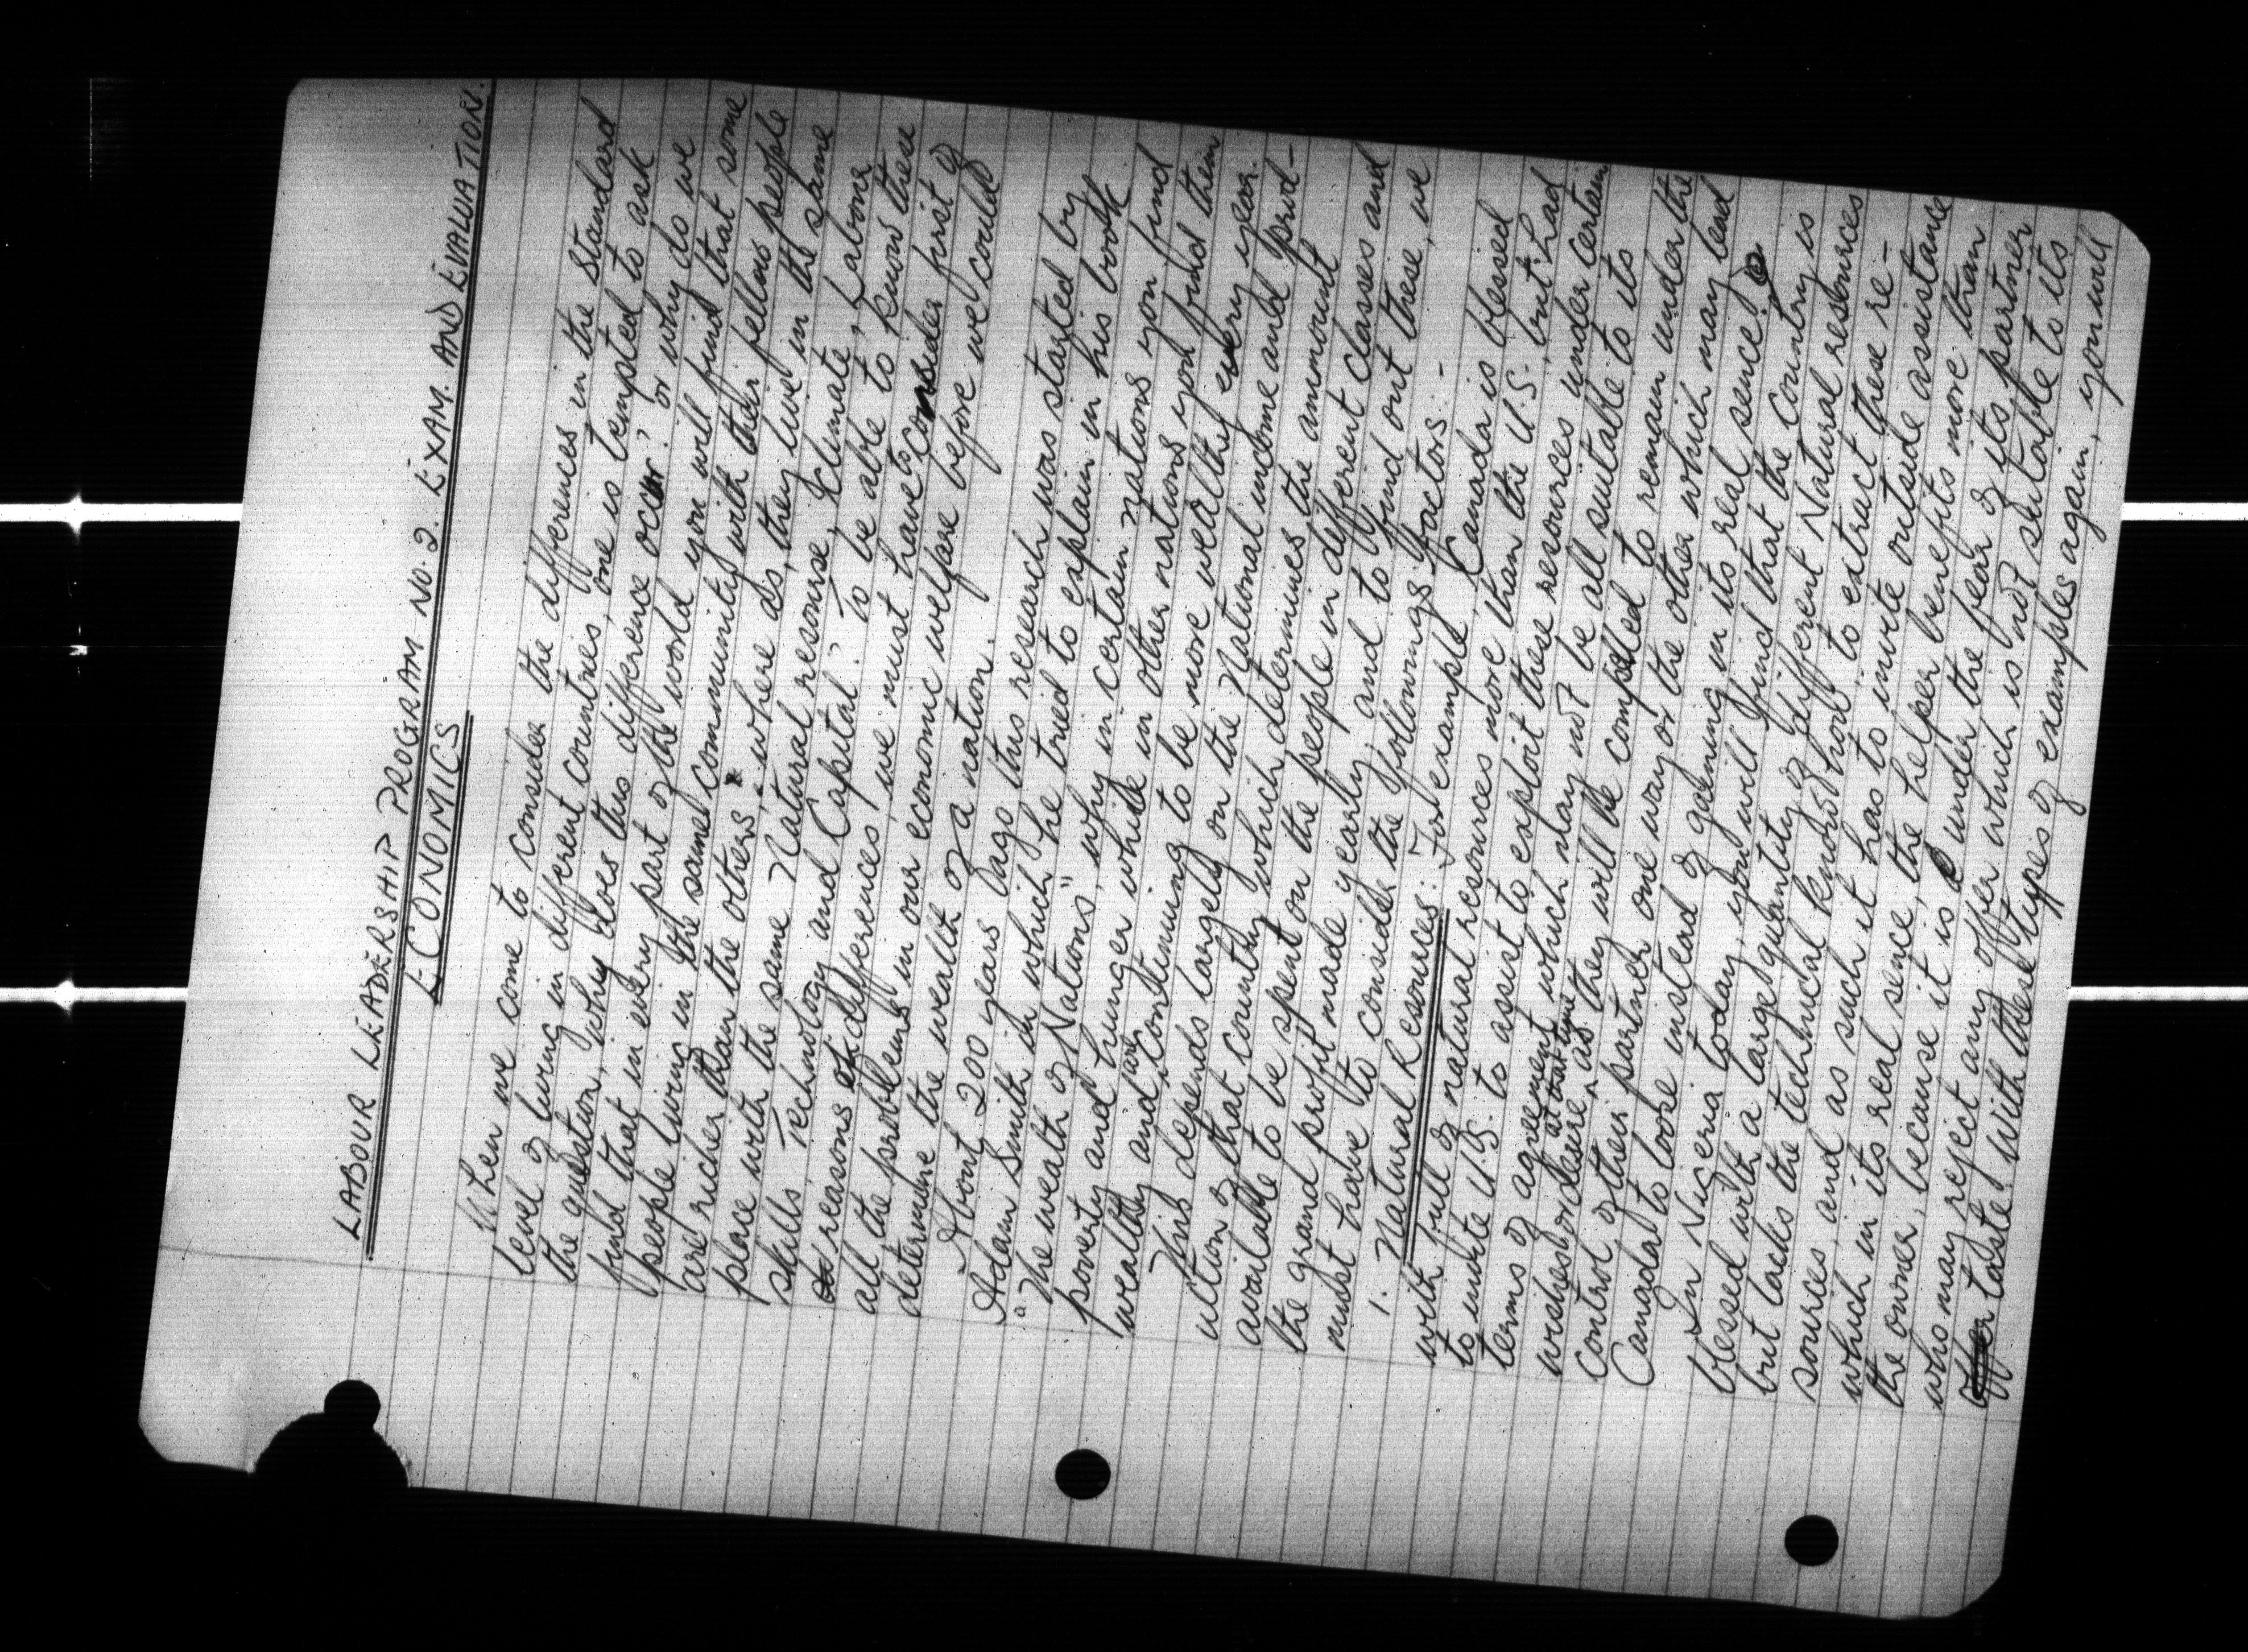 LABOUR LEADERSHIP PROGRAM NO. 2. EXAM. AND EVALUATION.
ECONOMICS
When we come to consider the differences in the Standard
level of living in different countries, one is tempted to ask
the question, why does this difference occur? or why do we
find that in every part of the world you will find that some
people living in the same community with their fellow people
are richer than the others, where as, they live in the same
place with the same Natural resourse, Climate, Labour
skills, Technology and Capital? To be able to know these
reasons differences, we must have to consider first of
all the problems in our economic welfare before we could
determine the wealth of a nation.
About 200 years ago this research was started by
Adam Smith in which he tried to explain in his book
"The wealth of Nations", why in certain nations you find
poverty and hunger while in other nations you find them
wealthy and are continuing to be more wealthy every year.
This depends largely on the National income and prod-
uction of that country which determines the ammount
available to be spent on the people in different classes and
the grand profit made yearly, and to find out these, we
must have to consider the followings factors:-
1. Natural Resources: For example, Canada is blessed
with full of natural resources more than the U.S. but had
to invite U.S. to assist to exploit these resources under certain
terms of agreement which may not be all suitable to its
wishes or desire at that time as they will be compelled to remain under the
control of their partner one way or the other which may lead
Canada to loose instead of gaining in its real sence.
In Nigeria today, you will find that the Country is
blessed with a large quantity of different Natural resources
but lacks the technical know "how" to extract these re-
sources, and as such it has to invite outside assistance
which in its real sence, the helper benefits more than
the owner, because it is under the fear of its partner
who may reject any offer which is not suitable to its
taste. With these types of examples again, you will